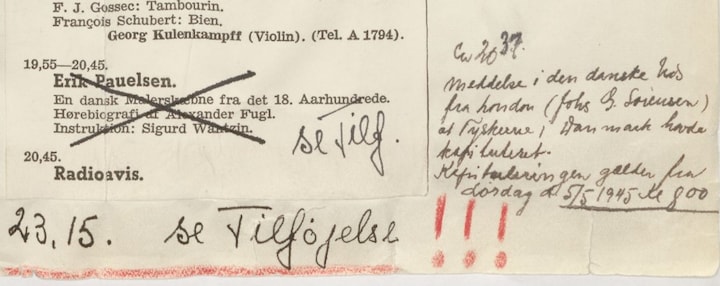 F. J. Gossec: Tambourin.
François Schubert: Bien.
Georg Kulenkampff (Violin). (Tel. A 1794).
19,55—20,45.
Erik Pauelsen.
En dansk Malerskæbne fra det 18. Aarhundrede.
Hørebiografi af Alexander Fugl.
Instruktion: Sigurd Wantzin.
se Tilf.
20,45.
Radioavis.
23,15. se Tilføjelse
Ca 20 37.
Meddelse i den danske Uds
fra London (Johs G. Sørensen)
at Tyskerne i Danmark havde
kapituleret.
Kapituleringen gælder fra
Lördag d 5/5 1945 Kl 8 00
!!!